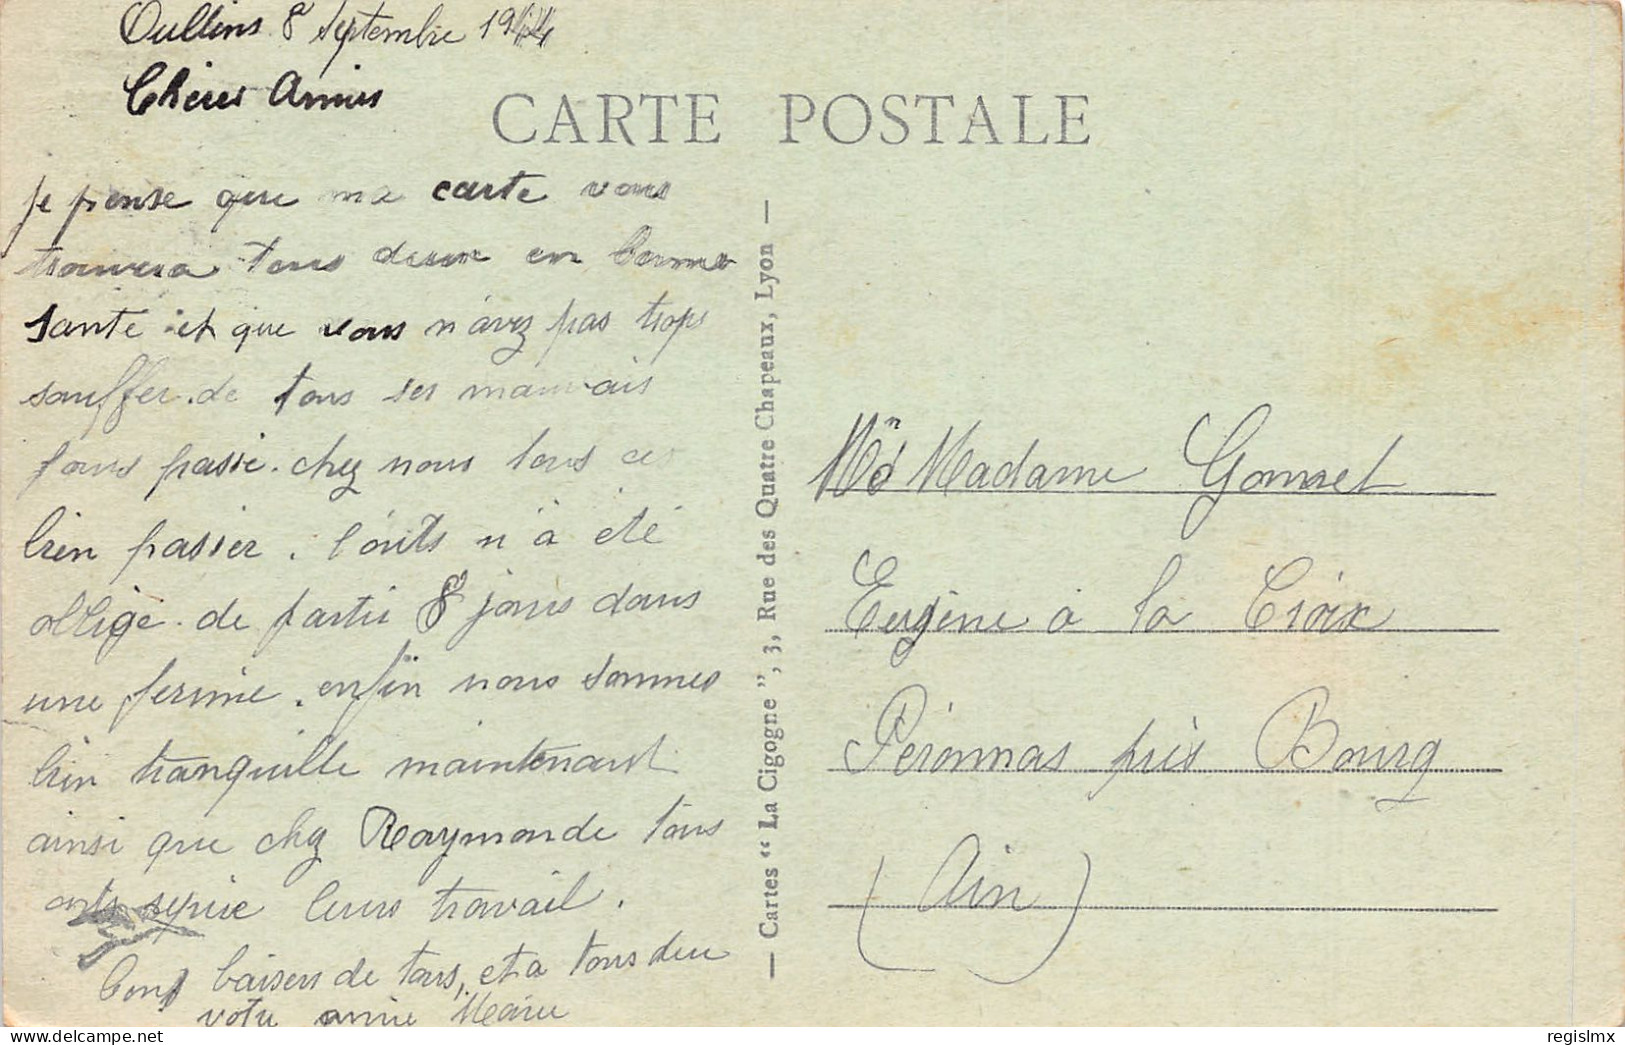 Oullins 8 Septembre 1944
Chères Amies
CARTE POSTALE
je pense que ma carte vous
trouvera tous deux en bonne
santé et que vous n'avez pas trop
souffer de tous ses mauvais
jours passé. chez nous tous ces
bien passer. Louis n'a été
obligé de partir 8 jours dans
une ferme. enfin nous sommes
bien tranquille maintenant
ainsi que chez Raymonde tous
onts repris leurs travail.
bons baisers de tous, et a tous deu
votre amie Marie
— Cartes “ La Cigogne ”, 3, Rue des Quatre Chapeaux, Lyon —
Madame Gonnet
Eugène à la Croix
Péronnas près Bourg
(Ain)
regislmx
delcampe.net